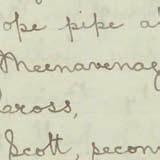 ope pipe a
Meenavenag
aross,
Scott, secon